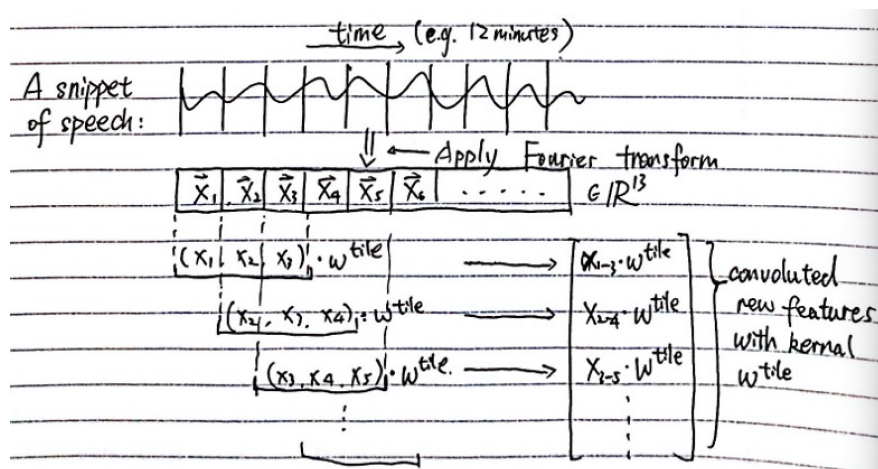 time (e.g. 12 minutes)
A snippet
of speech:
Apply Fourier transform
X₁ X₂ X₃ X₄ X₅ X₆ ..... ∈ ℝ¹³
(x₁ x₂ x₃) · w^tile → x₁₋₃ · w^tile
(x₂, x₃, x₄) · w^tile → x₂₋₄ · w^tile
(x₃, x₄, x₅) · w^tile. → x₃₋₅ · w^tile
convoluted
new features
with kernal
w^tile